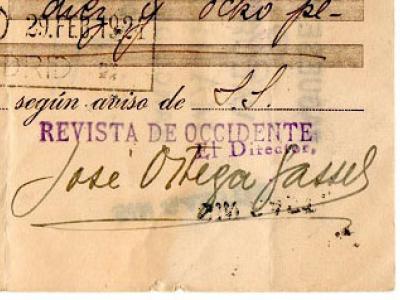 diez y ocho pe-
29 FEB 192
DRID
según aviso de S.S.
REVISTA DE OCCIDENTE
El Director,
José Ortega Gasset